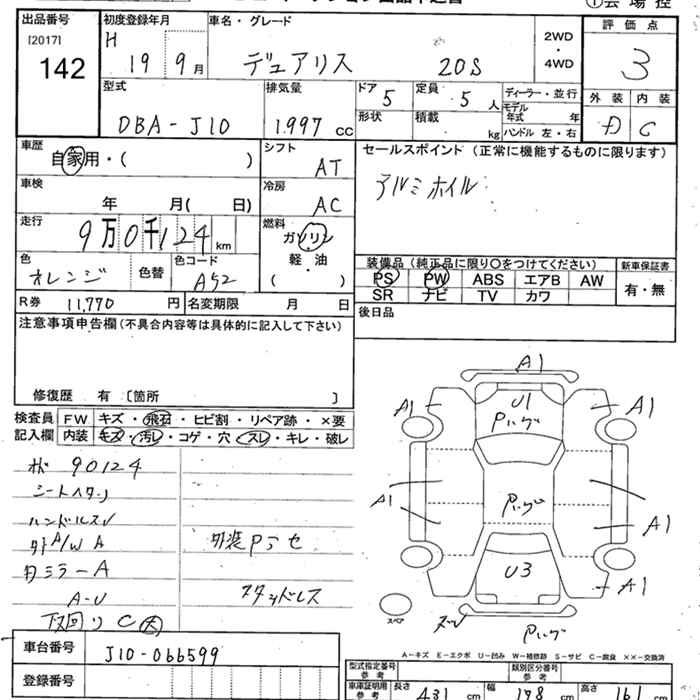 出品番号 初度登録年月 車名・グレード 評価点
[2017] H 2WD・4WD
142 19 9月 デュアリス 20S 3
型式 排気量 ドア 5 定員 5人 ディーラー・並行 外装 内装
DBA-J10 1.997 cc 形状 積載 kg モデル年式 年 ハンドル 左・右 D C
車歴 シフト セールスポイント (正常に機能するものに限ります)
自家用・( ) AT アルミホイル
車検 冷房
年 月( 日) AC
走行 燃料
9万0千124 km ガソリン
軽・油
( )
色 色替 色コード 装備品 (純正品に限り〇をつけてください) 新車保証書
オレンジ A52 PS PW ABS エアB AW 有・無
SR ナビ TV カワ
R券 11,770 円 名変期限 月 日 後日品
注意事項申告欄(不具合内容等は具体的に記入して下さい)
修復歴 有 〔箇所 〕
検査員 FW キズ・飛石・ヒビ割・リペア跡・×要
記入欄 内装 キズ・汚レ・コゲ・穴・スレ・キレ・破レ
90124
シートヘタリ
ハンドルスレ
外A/W A 外装Pラセ
ミラーA
A-U スタッドレス
下廻り C 大
車台番号 J10-066599
登録番号
A1
U1
Pハゲ
A1 A1
A1 Pハゲ A1
U3
A1
スペア
Pハゲ
A-キズ E-エクボ U-凹み W-補修跡 S-サビ C-腐食 XX-交換済
型式指定番号 参考 類別区分番号 参考
車庫証明用 参考 長さ 431 cm 幅 178 cm 高さ 161 cm